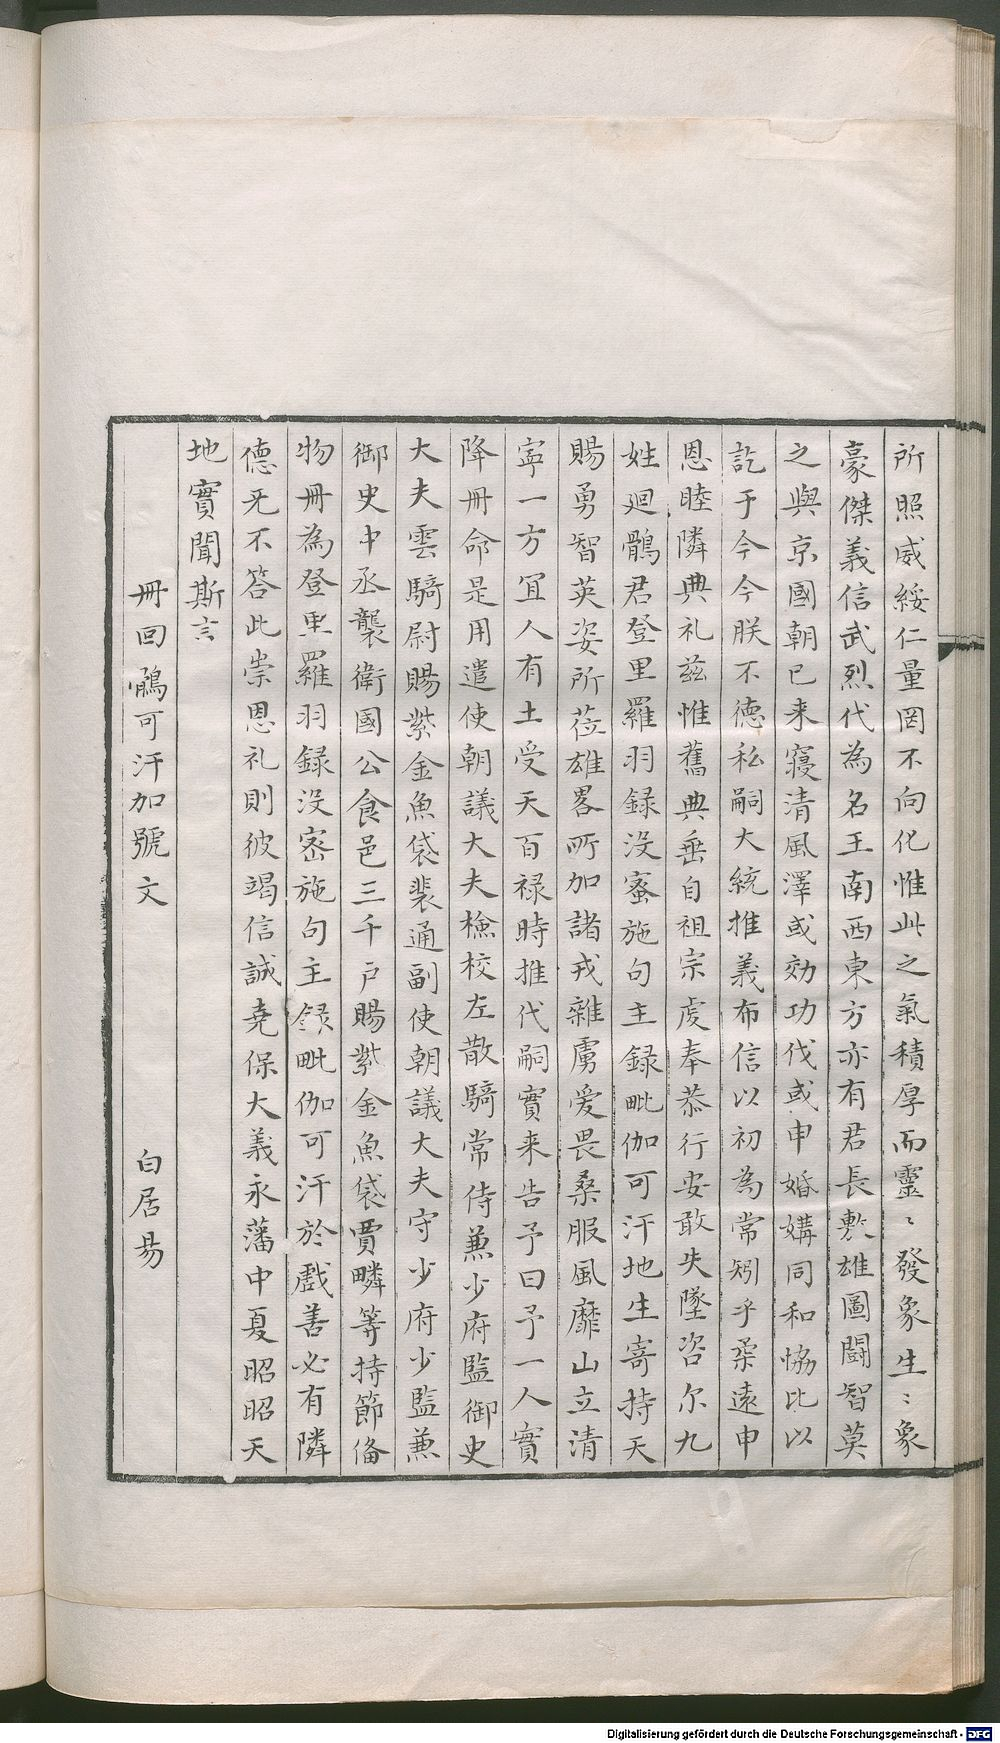 所照威綏仁量罔不向化惟此之氣積厚而靈〻發象生〻象
豪傑義信武烈代為名王南西東方亦有君長敷雄圖鬬智莫
之與京國朝已来寢清風澤或効功伐或申婚媾同和恊比以
訖于今今朕不德私嗣大統推義布信以初為常矧乎柔遠申
恩睦隣典礼茲惟舊典垂自祖宗虔奉恭行安敢失墜咨尔九
姓廻鶻君登里羅羽録没蜜施句主録毗伽可汗地生寄持天
賜勇智英姿所莅雄畧所加諸戎雜虜爱畏桑服風靡山立清
寜一方冝人有土受天百禄時推代嗣實来告予曰予一人實
降冊命是用遣使朝議大夫檢校左散騎常侍兼少府監御史
大夫雲騎尉賜紫金魚袋裴通副使朝議大夫守少府少監兼
御史中丞襲衛國公食邑三千户賜紫金魚袋賈疄等持節俻
物冊為登里羅羽録没宻施句主録毗伽可汗於戲善必有隣
德无不答此崇恩礼則彼竭信誠堯保大義永藩中夏昭昭天
地實聞斯言
冊回鶻可汗加號文 白居易
Digitalisierung gefördert durch die Deutsche Forschungsgemeinschaft - DFG